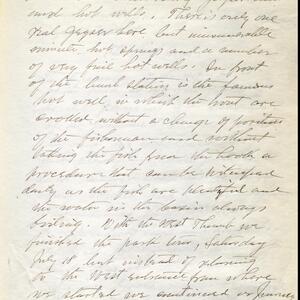 and hot wells. There is only one
real geyser here but innumerable
minute hot springs and a number
of very fine hot wells. In front
of the lunch station is the famous
hot well in which the trout are
cooked without a change of position
of the fisherman and without
taking the fish from the hook a
procedure that can be witnessed
daily as the fish are plentiful and
the water in the basin always
boiling. With the West Thumb we
finished the park tour, Saturday
July 18 but instead of
to the West entrance from where
we started we continued our journey